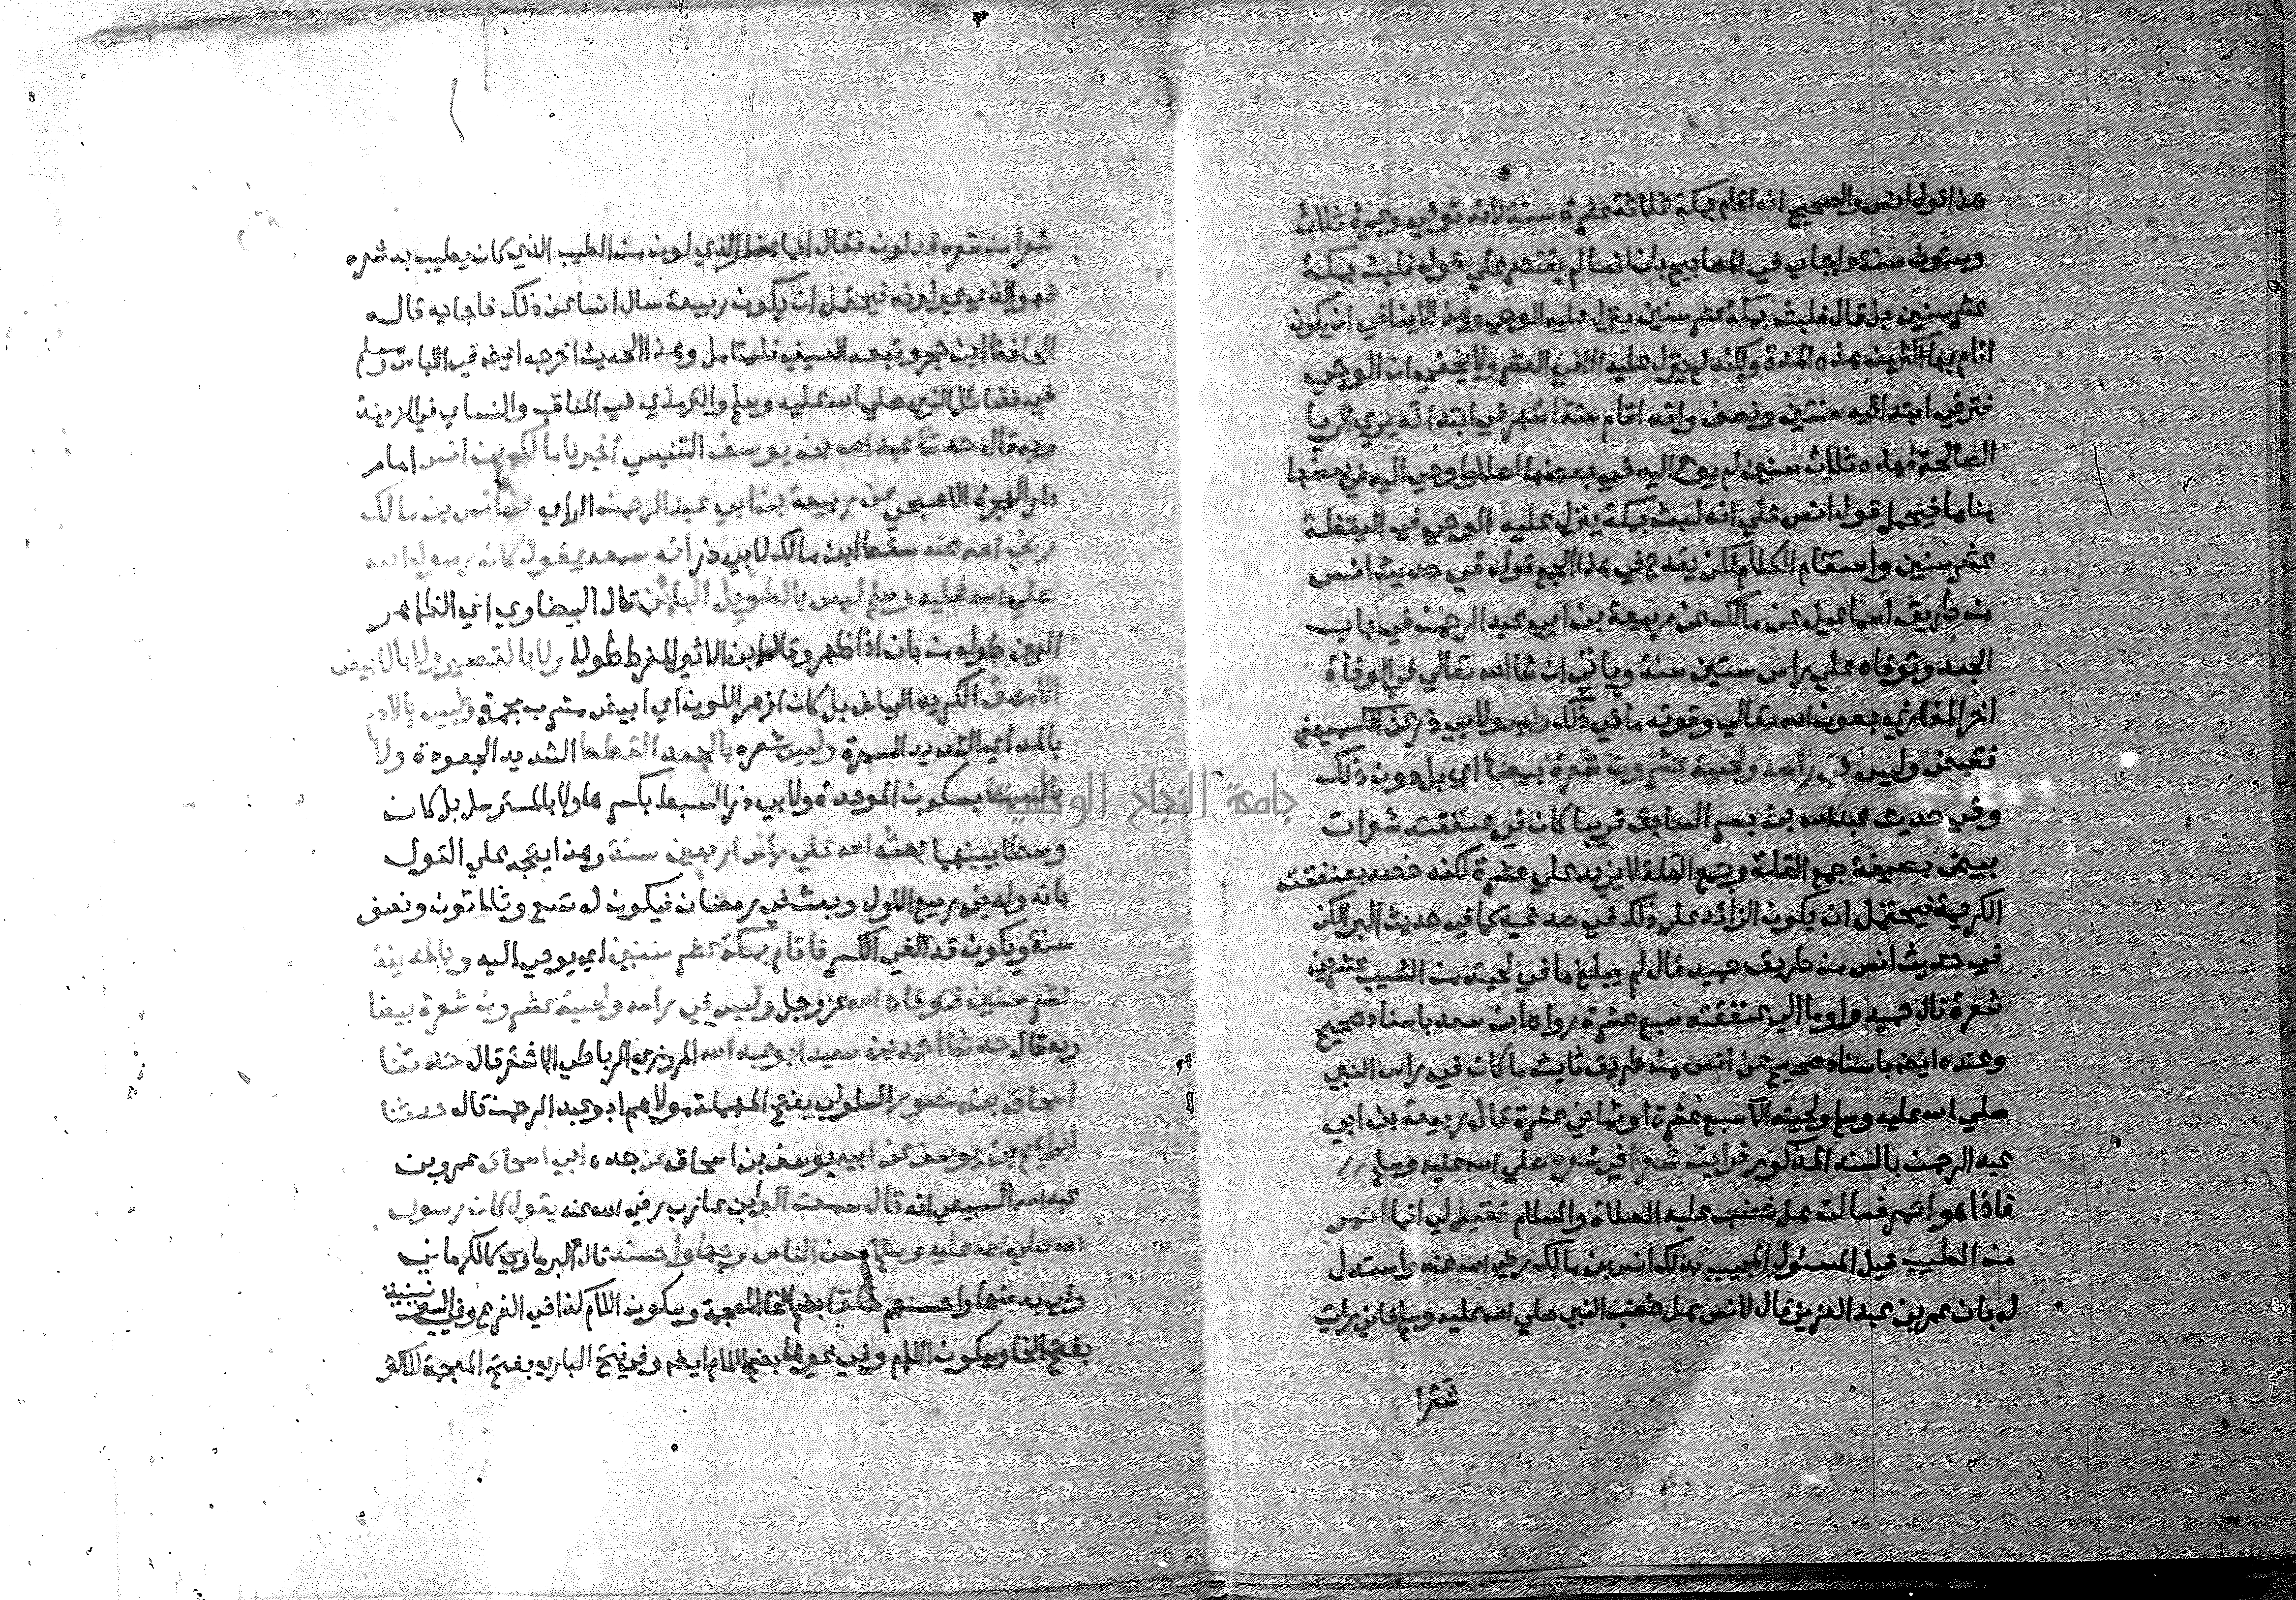 هذا قول انس والصحيح انه اقام بمكة ثلاثة عشرة سنة لانه توفي وعمره ثلاث
وستون سنة واجاب في المصابيح بان انسا لم يقتصر علي قوله فلبث بمكة
عشر سنين بل قال فلبث بمكة عشر سنين ينزل عليه الوحي وهذا لا ينافي ان يكون
اقام بها اكثر من هذه المدة ولكنه لم ينزل عليه الا في العشر ولا يخفي ان الوحي
فتر في ابتدائه سنتين ونصف وانه اقام ستة اشهر في ابتدائه يري الريا
الصالحة فهذه ثلاث سنين لم يوح اليه في بعضها اصلا واوحي اليه في بعضها
مناما فيحمل قول انس علي انه لبث بمكة ينزل عليه الوحي في اليقظة
عشر سنين واستقام الكلام لكن يقدح في هذا الجمع قوله في حديث انس
من طريق اسماعيل عن مالك عن ربيعة بن ابي عبد الرحمن في باب
الجعد وتوفاه علي راس ستين سنة وياتي ان شا الله تعالي في الوفاة
اخر المغازي بعون الله تعالي وقوته ما في ذلك وليس ولابي ذر عن الكشميهني
فقبض وليس في راسه ولحيته عشرون شعرة بيضا اي بل دون ذلك
وفي حديث عبد الله بن بسر السابق قريبا كان في عنفقته شعرات
بيض بصيغة جمع القلة وجمع القلة لا يزيد علي عشرة لكنه خصه بعنفقته
الكريمة فيحتمل ان يكون الزائد علي ذلك في صدغيه كما في حديث البرا لكن
في حديث انس من طريق حميد قال لم يبلغ ما في لحيته من الشيب عشرين
شعرة قال حميد واوما الي عنفقته سبع عشرة رواه ابن سعد باسناد صحيح
وعنده ايضا باسناد صحيح عن انس من طريق ثابت ما كان في راس النبي
صلي الله عليه وسلم ولحيته الا سبع عشرة او ثماني عشرة قال ربيعة بن ابي
عبد الرحمن بالسند المذكور فرايت شعرا في شعره صلي الله عليه وسلم
فاذا هو احمر فسالت هل خضب عليه الصلاة والسلام فقيل لي انما احمر
من الطيب قيل المسئول المجيب بذلك انس بن مالك رضي الله عنه واستدل
له بان عمر بن عبد العزيز قال لانس هل خضب النبي صلي الله عليه وسلم فاني رايت
شعرا
شعرا من شعره قد لون فقال انما هذا الذي لون من الطيب الذي كان يطيب به شعره
فهو الذي غير لونه فيحتمل ان يكون ربيعة سال انسا عن ذلك فاجابه قاله
الحافظ ابن حجر وتبعه العيني فليتامل وهذا الحديث اخرجه ايضا في اللباس ومسلم
في فضائل النبي صلي الله عليه وسلم والترمذي في المناقب والنساي في الزينة
وبه قال حدثنا عبد الله بن يوسف التنيسي اخبرنا مالك بن انس امام
دار الهجرة الاصبحي عن ربيعة بن ابي عبد الرحمن الراي عن انس بن مالك
رضي الله عنه سقط ابن مالك لابي ذر انه سمعه يقول كان رسول الله
صلي الله عليه وسلم ليس بالطويل البائن قال البيضاوي اي الظاهر
البين طوله من بان اذا ظهر وقال ابن الاثير المفرط طولا ولا بالقصير ولا بالابيض
الامهق الكريه البياض بل كان ازهر اللون اي ابيض مشرب بحمرة وليس بالادم
بالمد اي الشديد السمرة وليس شعره بالجعد القطط الشديد الجعودة ولا
بالسبط بسكون الموحدة ولابي ذر السبط بكسرها ولا بالمسترسل بل كان
وسطا بينهما بعثه الله علي راس اربعين سنة وهذا يتجه علي القول
بانه ولد في ربيع الاول وبعث في رمضان فيكون له تسع وثلاثون ونصف
سنة ويكون قد الغي الكسر فاقام بمكة عشر سنين اي يوحي اليه وبالمدينة
عشر سنين فتوفاه الله عز وجل وليس في راسه ولحيته عشرون شعرة بيضا
وبه قال حدثنا احمد بن سعيد ابو عبد الله المروزي الرباطي الاشقر قال حدثنا
اسحاق بن منصور السلولي بفتح المهملة مولاهم ابو عبد الرحمن قال حدثنا
ابراهيم بن يوسف عن ابيه يوسف بن اسحاق عن جده ابي اسحاق عمرو بن
عبد الله السبيعي انه قال سمعت البرا بن عازب رضي الله عنه يقول كان رسول
الله صلي الله عليه وسلم احسن الناس وجها واحسنه قال البرماوي كالكرماني
وفي بعضها واحسنهم خلقا بفتح الخا المعجمة وسكون اللام كذا في الفرع وفي اليونينية
بفتح الخا وسكون اللام وفي غيرها بضم اللام ايضا وفي فتح الباري بفتح المعجمة للاكثر
جامعة النجاح الوطنية